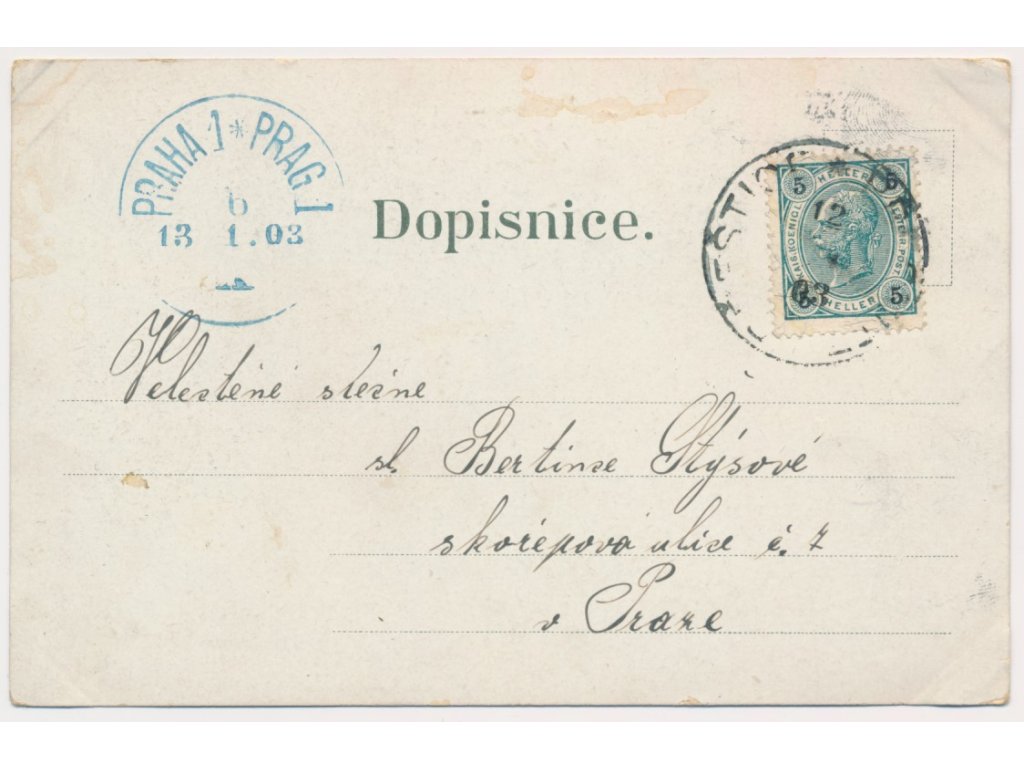 PRAHA 1 * PRAG 1
6
13 1.03
Dopisnice.
12
03
5 HELLER 5
KAIS. KOENIGL. OESTERR. POST
5 HELLER 5
Velectěné slečně
sl. Bertince Stýsové
skořepová ulice č. 7
v Praze